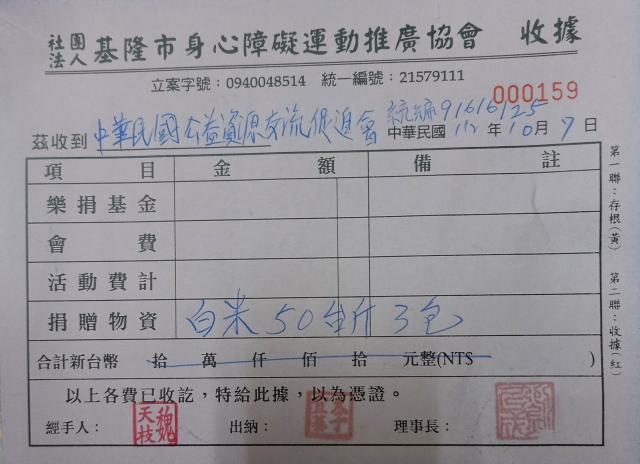 社團法人 基隆市身心障礙運動推廣協會 收據
立案字號：0940048514 統一編號：21579111
000159
茲收到 中華民國公益資源交流促進會 統編91616125
中華民國 112 年 10 月 7 日
項目 金額 備註
樂捐基金
會費
活動費計
捐贈物資 白米 50台斤 3包
合計新台幣 拾 萬 仟 佰 拾 元整(NT$ )
以上各費已收訖，特給此據，以為憑證。
經手人： 魏天技 出納： 理事長：
第一聯：存根(黃) 第二聯：收據(紅)